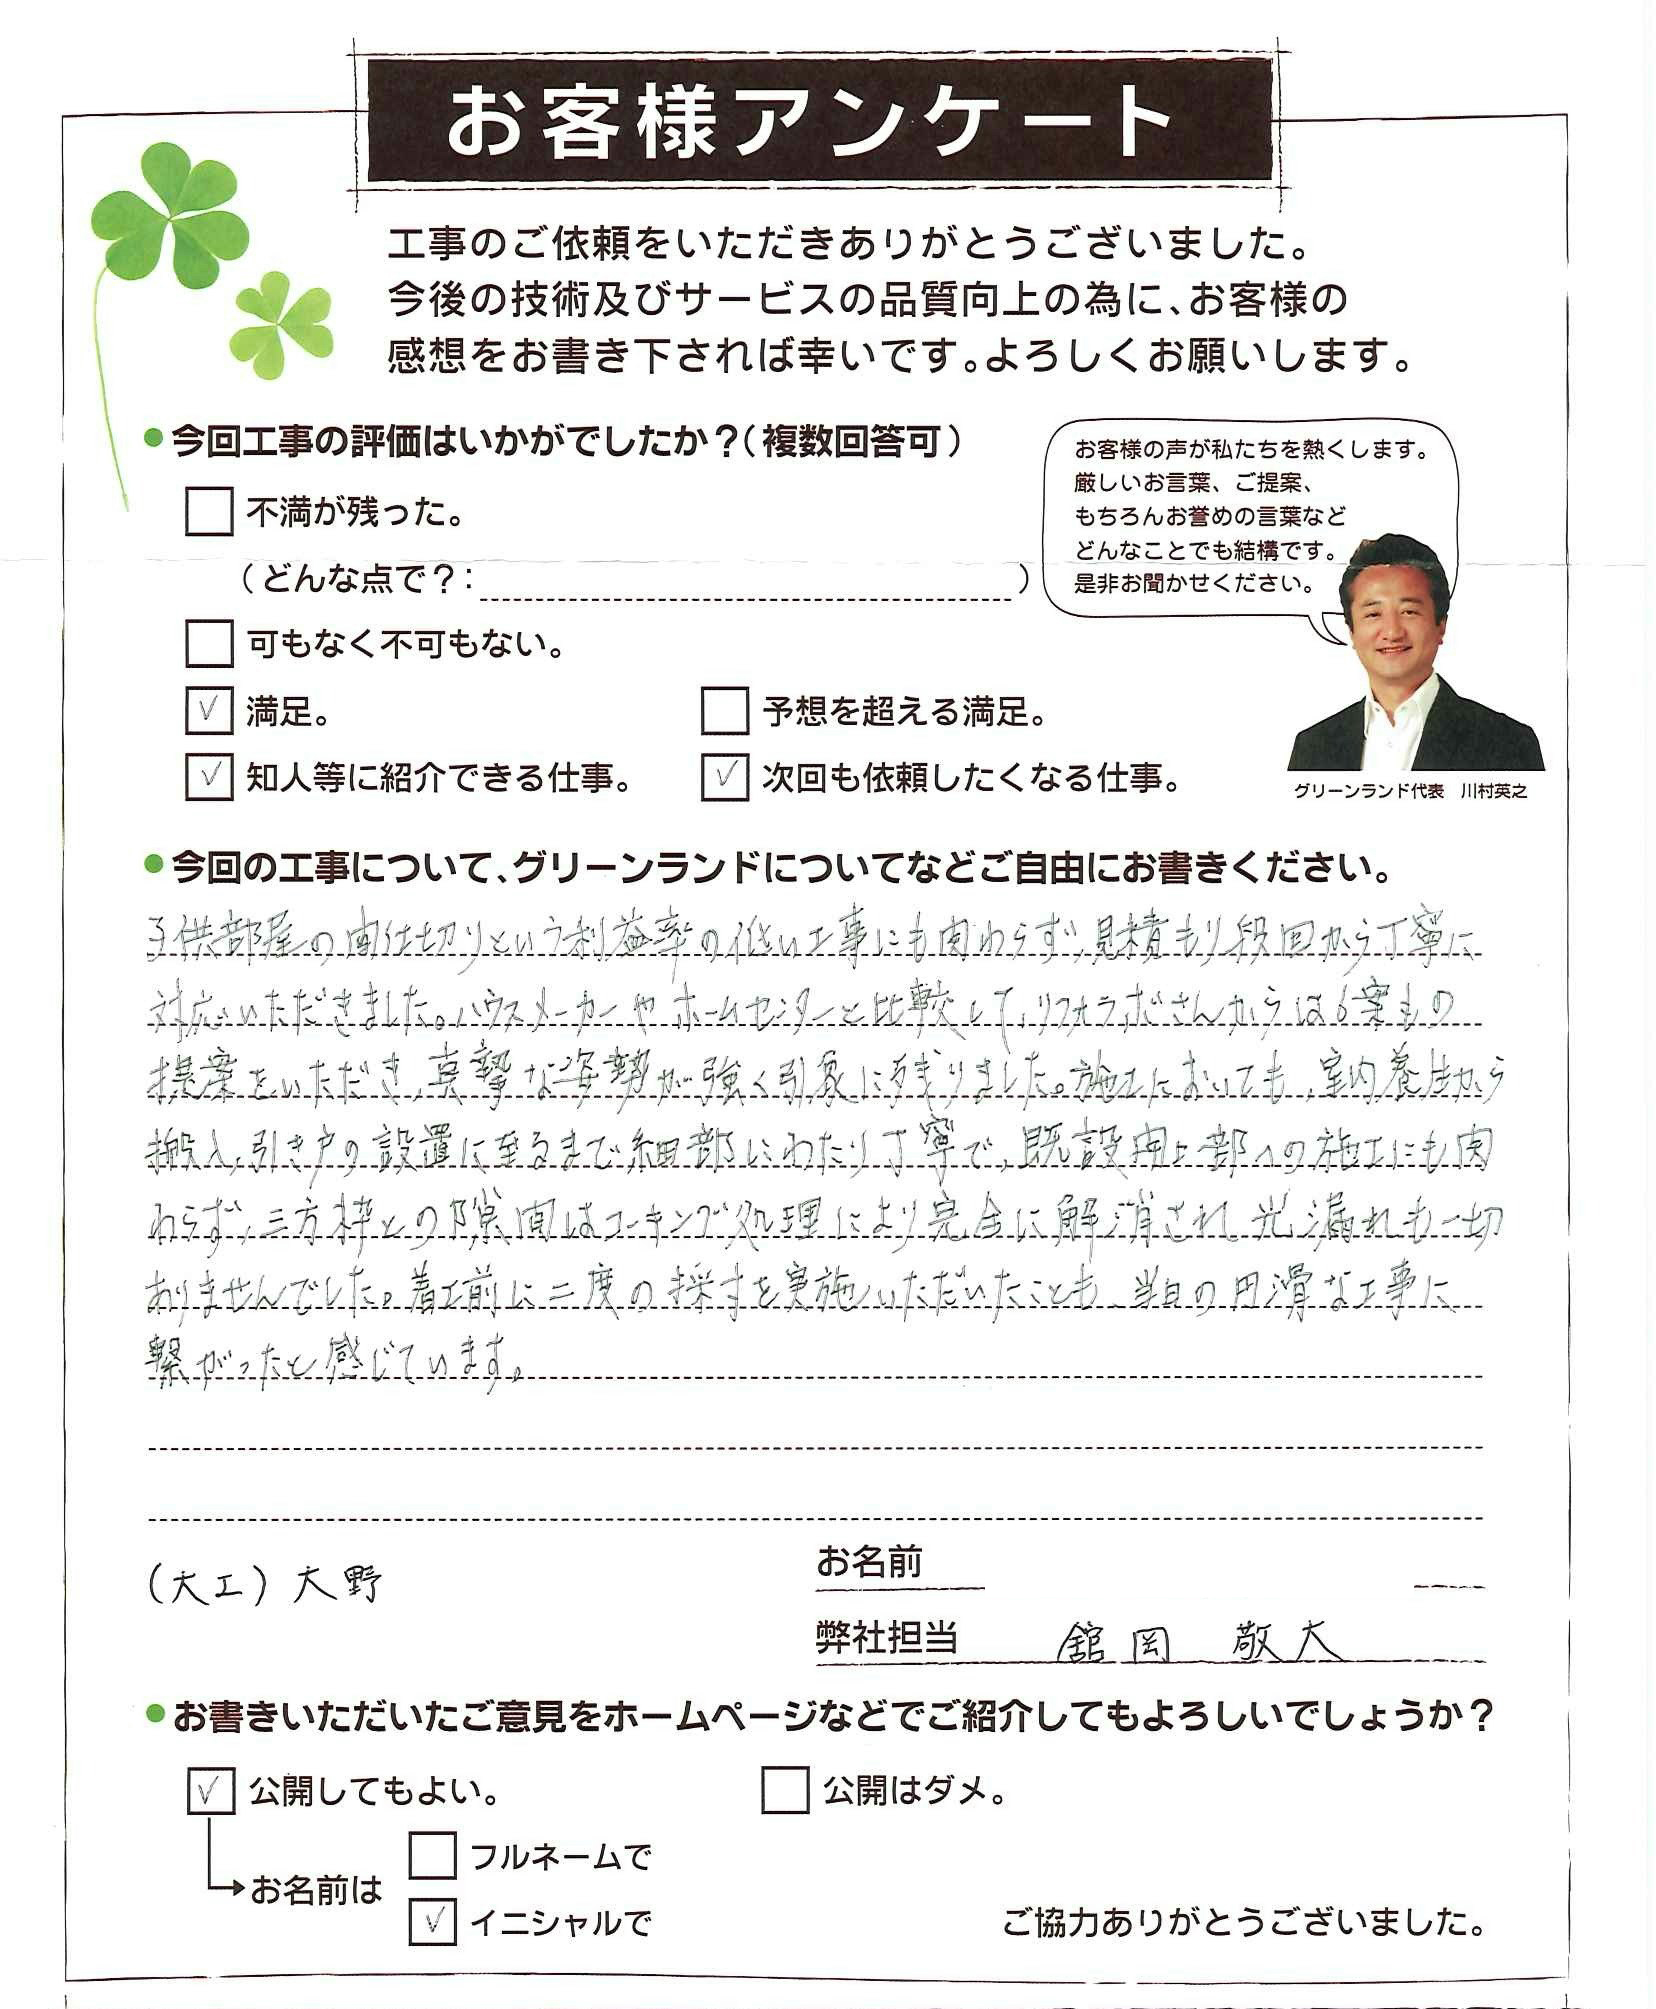 お客様アンケート
工事のご依頼をいただきありがとうございました。
今後の技術及びサービスの品質向上の為に、お客様の
感想をお書き下されば幸いです。よろしくお願いします。
●今回工事の評価はいかがでしたか？（複数回答可）
お客様の声が私たちを熱くします。
厳しいお言葉、ご提案、
もちろんお誉めの言葉など
どんなことでも結構です。
是非お聞かせください。
不満が残った。
（どんな点で？：　）
可もなく不可もない。
✓ 満足。
予想を超える満足。
✓ 知人等に紹介できる仕事。
✓ 次回も依頼したくなる仕事。
グリーンランド代表　川村英之
●今回の工事について、グリーンランドについてなどご自由にお書きください。
子供部屋の間仕切りという利益率の低い工事にも関わらず、見積もり段回から丁寧に
対応いただきました。ハウスメーカーやホームセンターと比較して、リフォラボさんからは6案もの
提案をいただき、真摯な姿勢が強く引象に残りました。施工においても、室内養生から
搬入、引き戸の設置に至るまで細部にわたり丁寧で、既設開上部への施工にも関
わらず、三方枠との隙間はコーキング処理により完全に解消され光漏れも一切
ありませんでした。着工前に二度の採寸を実施いただいたことも、当日の円滑な工事に
繋がったと感じています。
（大工）大野
お名前
弊社担当　舘岡　敬大
●お書きいただいたご意見をホームページなどでご紹介してもよろしいでしょうか？
✓ 公開してもよい。
公開はダメ。
フルネームで
お名前は
✓ イニシャルで
ご協力ありがとうございました。